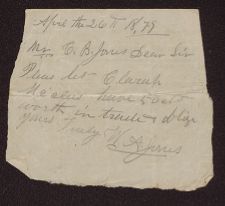 April the 26th 1879
Mr. C. B. Jones Dear Sir
Pleas let Clarah
have 50 cts
worth in trade & oblige
yours Truly W A Jones